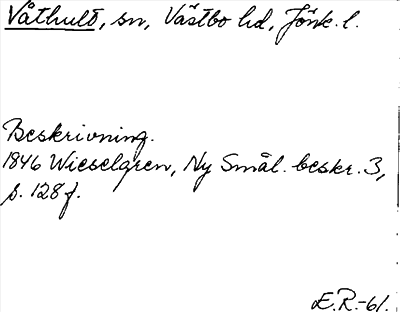 Våthult, sn, Västbo hd, Jönk. l.
Beskrivning.
1846 Wieselgren, Ny Smål. beskr. 3,
s. 128 f.
E.R.-61.